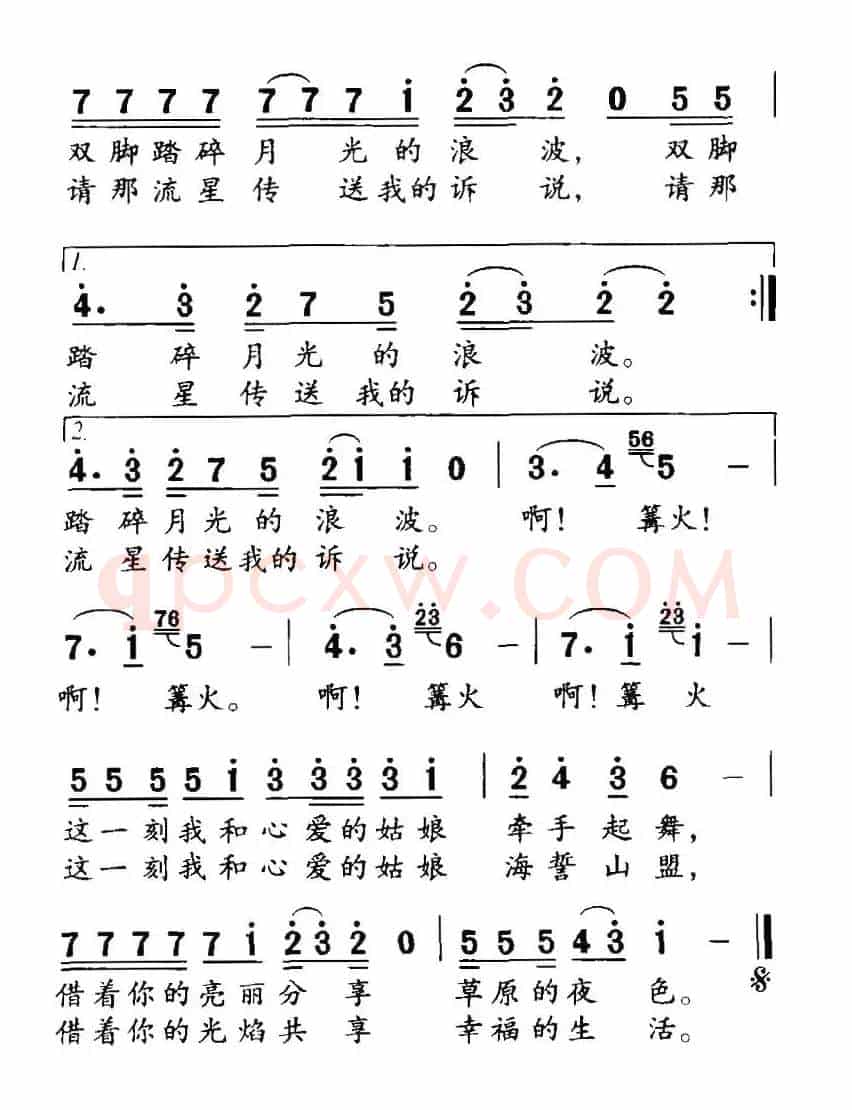 7 7 7 7 7 7 7 i 2 3 2 0 5 5
双脚踏碎月 光的浪 波, 双脚
请那流星传 送我的诉 说, 请那
1.
4. 3 2 7 5 2 3 2 2
踏 碎月光的浪 波。
流 星传送我的诉 说。
2.
4. 3 2 7 5 2 i i 0 3. 4 56 5 -
踏碎月光的浪 波。 啊! 篝火!
流星传送我的诉 说。
qpcxw.COM
7. i 76 5 - 4. 3 23 6 - 7. i 23 i -
啊! 篝火。 啊! 篝火 啊! 篝火
5 5 5 5 i 3 3 3 3 i 2 4 3 6 -
这一刻我和心爱的姑娘 牵手起舞,
这一刻我和心爱的姑娘 海誓山盟,
7 7 7 7 7 i 2 3 2 0 5 5 5 4 3 i -
借着你的亮丽分 享 草原的夜 色。
借着你的光焰共 享 幸福的生 活。